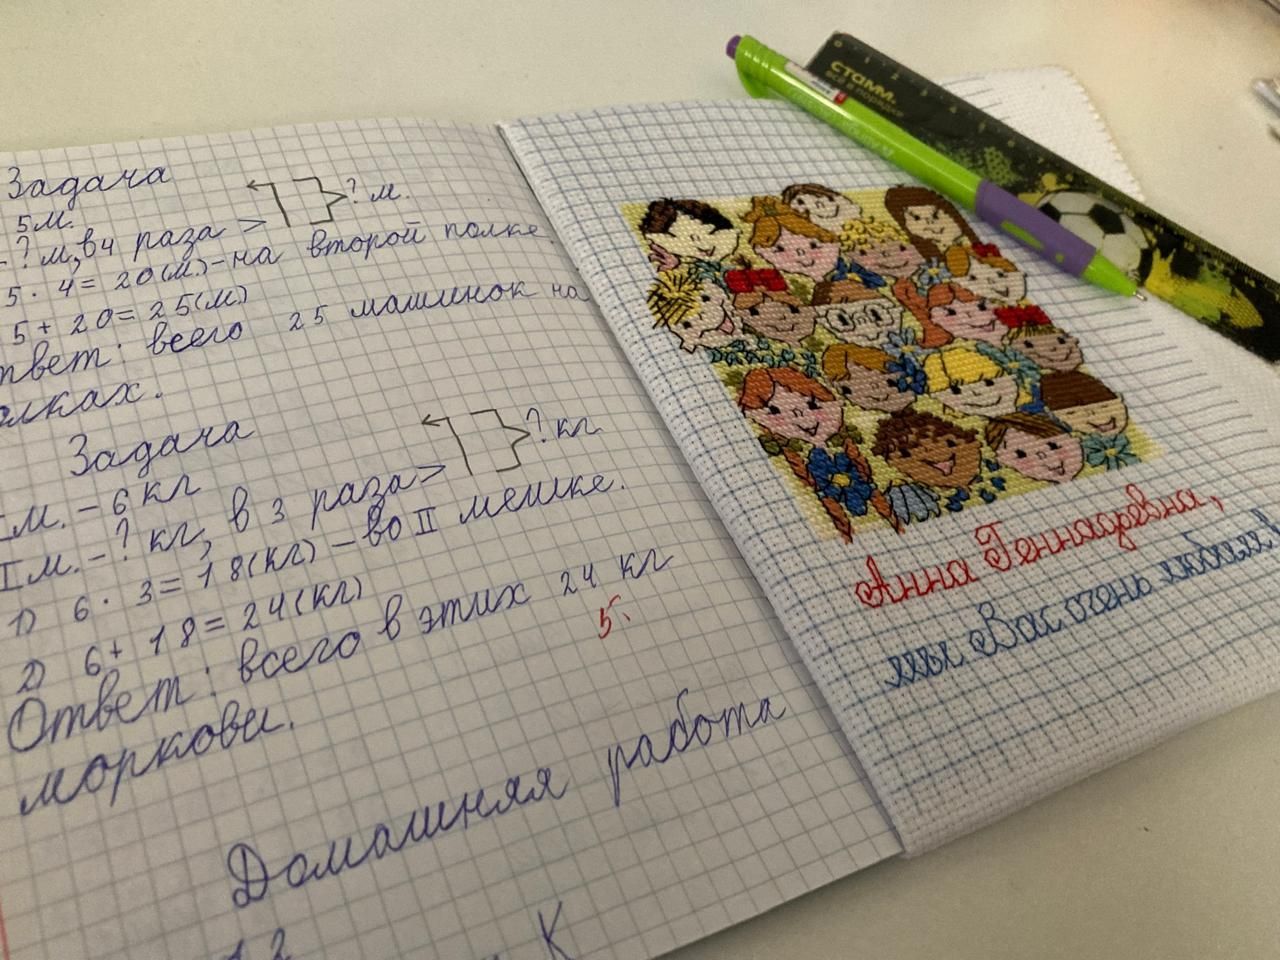 Задача
5м.
-?м, в 4 раза >
?м.
5 · 4 = 20(м)-на второй полке.
5 + 20 = 25(м)
твет: всего 25 машинок на
олках.
Задача
Iм. - 6 кг
IIм. - ? кг, в 3 раза >
?кг
1) 6 · 3 = 18(кг) - во II мешке.
2) 6 + 18 = 24(кг)
Ответ: всего в этих 24 кг
моркови.
5.
Домашняя работа
12
К
стамм.
всё в порядке
Анна Геннадьевна,
мы Вас очень любим!